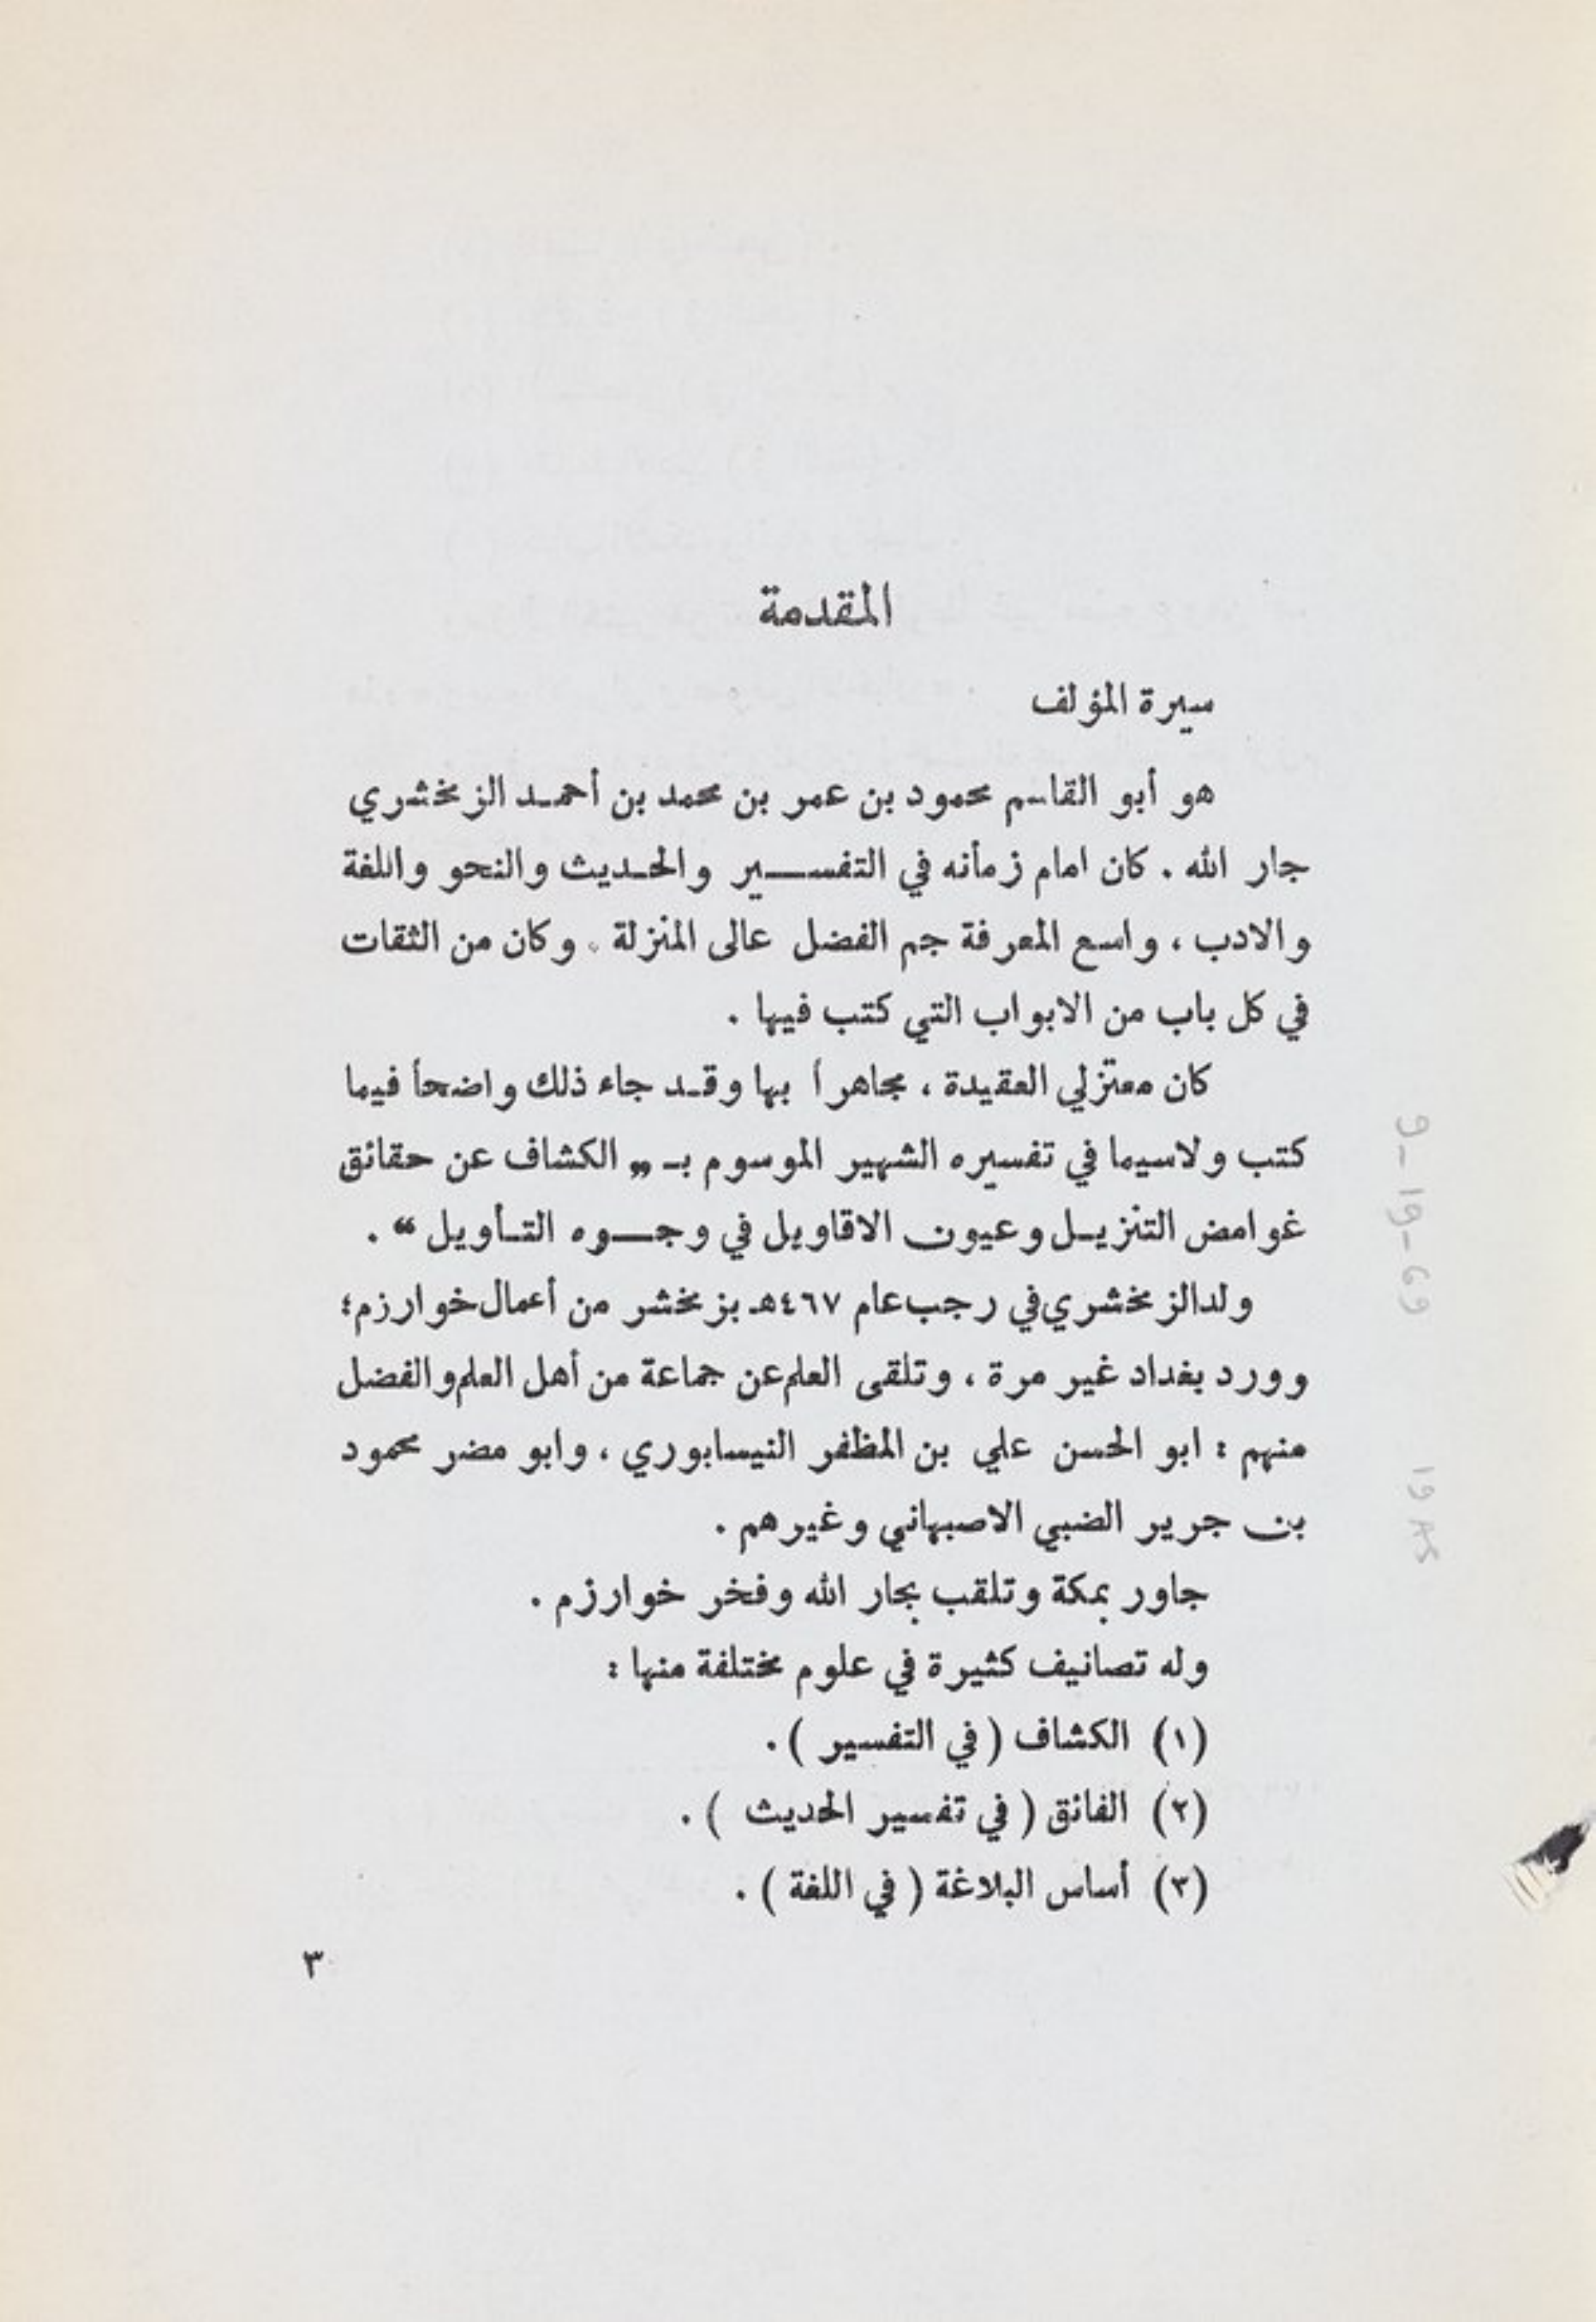 المقدمة
سيرة المؤلف
هو أبو القاسم محمود بن عمر بن محمد بن أحمد الزمخشري
جار الله . كان امام زمأنه في التفسير والحديث والنحو واللغة
والادب ، واسع المعرفة جم الفضل عالى المنزلة . وكان من الثقات
في كل باب من الابواب التي كتب فيها .
كان معتزلي العقيدة ، مجاهراً بها وقد جاء ذلك واضحاً فيما
كتب ولاسيما في تفسيره الشهير الموسوم بـ „ الكشاف عن حقائق
غوامض التنزيل وعيون الاقاويل في وجوه التأويل “ .
ولد الزمخشري في رجب عام ٤٦٧هـ بزمخشر من أعمال خوارزم؛
وورد بغداد غير مرة ، وتلقى العلم عن جماعة من أهل العلم والفضل
منهم : ابو الحسن علي بن المظفر النيسابوري ، وابو مضر محمود
بن جرير الضبي الاصبهاني وغيرهم .
جاور بمكة وتلقب بجار الله وفخر خوارزم .
وله تصانيف كثيرة في علوم مختلفة منها :
(١) الكشاف ( في التفسير ) .
(٢) الفائق ( في تفسير الحديث ) .
(٣) أساس البلاغة ( في اللغة ) .
٣
9-19-69